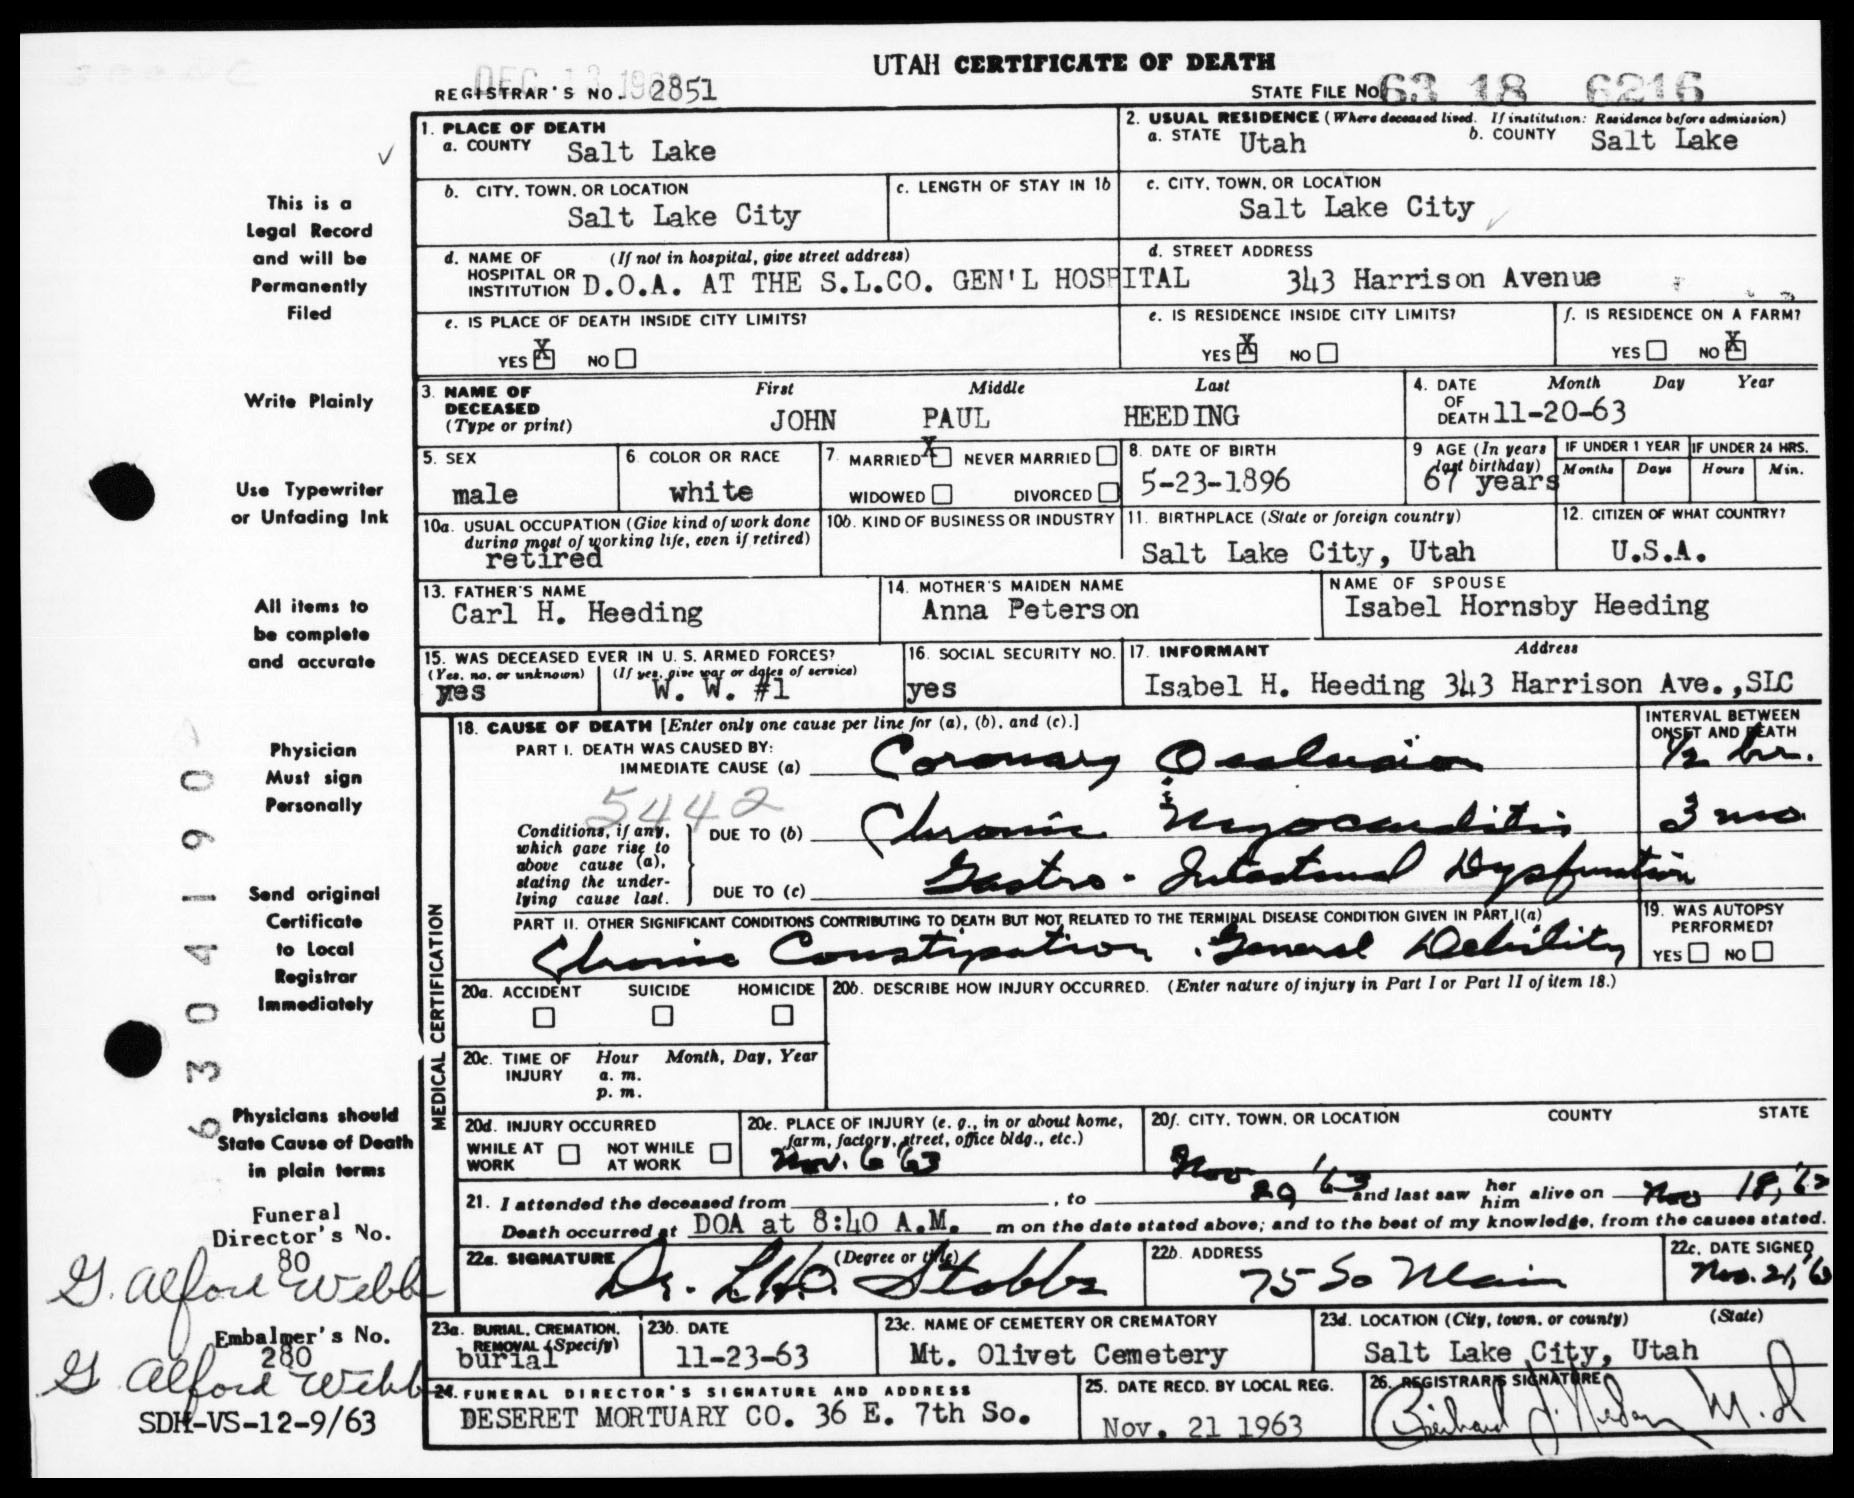 UTAH CERTIFICATE OF DEATH
REGISTRAR'S NO. 2851
STATE FILE NO. 63 18 6216
1. PLACE OF DEATH
a. COUNTY Salt Lake
2. USUAL RESIDENCE (Where deceased lived. If institution: Residence before admission)
a. STATE Utah b. COUNTY Salt Lake
b. CITY, TOWN, OR LOCATION
Salt Lake City
c. LENGTH OF STAY IN 1b
c. CITY, TOWN, OR LOCATION
Salt Lake City
d. NAME OF HOSPITAL OR INSTITUTION (If not in hospital, give street address)
D.O.A. AT THE S.L.CO. GEN'L HOSPITAL
d. STREET ADDRESS
343 Harrison Avenue
e. IS PLACE OF DEATH INSIDE CITY LIMITS?
YES X NO
e. IS RESIDENCE INSIDE CITY LIMITS?
YES X NO
f. IS RESIDENCE ON A FARM?
YES NO X
3. NAME OF DECEASED (Type or print)
First Middle Last
JOHN PAUL HEEDING
4. DATE OF DEATH Month Day Year
11-20-63
5. SEX
male
6. COLOR OR RACE
white
7. MARRIED X NEVER MARRIED
WIDOWED DIVORCED
8. DATE OF BIRTH
5-23-1896
9 AGE (In years last birthday)
67 years
IF UNDER 1 YEAR IF UNDER 24 HRS.
Months Days Hours Min.
10a. USUAL OCCUPATION (Give kind of work done during most of working life, even if retired)
retired
10b. KIND OF BUSINESS OR INDUSTRY
11. BIRTHPLACE (State or foreign country)
Salt Lake City, Utah
12. CITIZEN OF WHAT COUNTRY?
U.S.A.
13. FATHER'S NAME
Carl H. Heeding
14. MOTHER'S MAIDEN NAME
Anna Peterson
NAME OF SPOUSE
Isabel Hornsby Heeding
15. WAS DECEASED EVER IN U. S. ARMED FORCES?
(Yes, no, or unknown) (If yes, give war or dates of service)
yes W. W. #1
16. SOCIAL SECURITY NO.
yes
17. INFORMANT Address
Isabel H. Heeding 343 Harrison Ave.,SLC
MEDICAL CERTIFICATION
18. CAUSE OF DEATH [Enter only one cause per line for (a), (b), and (c).]
INTERVAL BETWEEN ONSET AND DEATH
PART I. DEATH WAS CAUSED BY:
IMMEDIATE CAUSE (a) Coronary Occlusion 1/2 hr.
5442
Conditions, if any, which gave rise to above cause (a), stating the underlying cause last.
DUE TO (b) Chronic Myocarditis 3 mo.
DUE TO (c) Gastro-Intestinal Dysfunction
PART II. OTHER SIGNIFICANT CONDITIONS CONTRIBUTING TO DEATH BUT NOT RELATED TO THE TERMINAL DISEASE CONDITION GIVEN IN PART I(a)
Chronic Constipation. General Debility
19. WAS AUTOPSY PERFORMED?
YES NO
20a. ACCIDENT SUICIDE HOMICIDE
20b. DESCRIBE HOW INJURY OCCURRED. (Enter nature of injury in Part I or Part II of item 18.)
20c. TIME OF INJURY Hour Month, Day, Year
a. m.
p. m.
20d. INJURY OCCURRED
WHILE AT WORK NOT WHILE AT WORK
20e. PLACE OF INJURY (e. g., in or about home, farm, factory, street, office bldg., etc.)
20f. CITY, TOWN, OR LOCATION COUNTY STATE
21. I attended the deceased from Nov. 6 '63, to Nov 20, '63 and last saw her him alive on Nov 18, '63
Death occurred at DOA at 8:40 A.M. m on the date stated above; and to the best of my knowledge, from the causes stated.
22a. SIGNATURE (Degree or title)
Dr. L.H.O. Stobbs
22b. ADDRESS
75 So Main
22c. DATE SIGNED
Nov. 21, '63
23a. BURIAL, CREMATION, REMOVAL (Specify)
burial
23b. DATE
11-23-63
23c. NAME OF CEMETERY OR CREMATORY
Mt. Olivet Cemetery
23d. LOCATION (City, town, or county) (State)
Salt Lake City, Utah
24. FUNERAL DIRECTOR'S SIGNATURE AND ADDRESS
DESERET MORTUARY CO. 36 E. 7th So.
25. DATE RECD. BY LOCAL REG.
Nov. 21 1963
26. REGISTRAR'S SIGNATURE
This is a
Legal Record
and will be
Permanently
Filed
Write Plainly
Use Typewriter
or Unfading Ink
All items to
be complete
and accurate
Physician
Must sign
Personally
Send original
Certificate
to Local
Registrar
Immediately
Physicians should
State Cause of Death
in plain terms
6304190
Funeral
Director's No.
80
G. Alford Webb
Embalmer's No.
280
G Alford Webb
SDH-VS-12-9/63